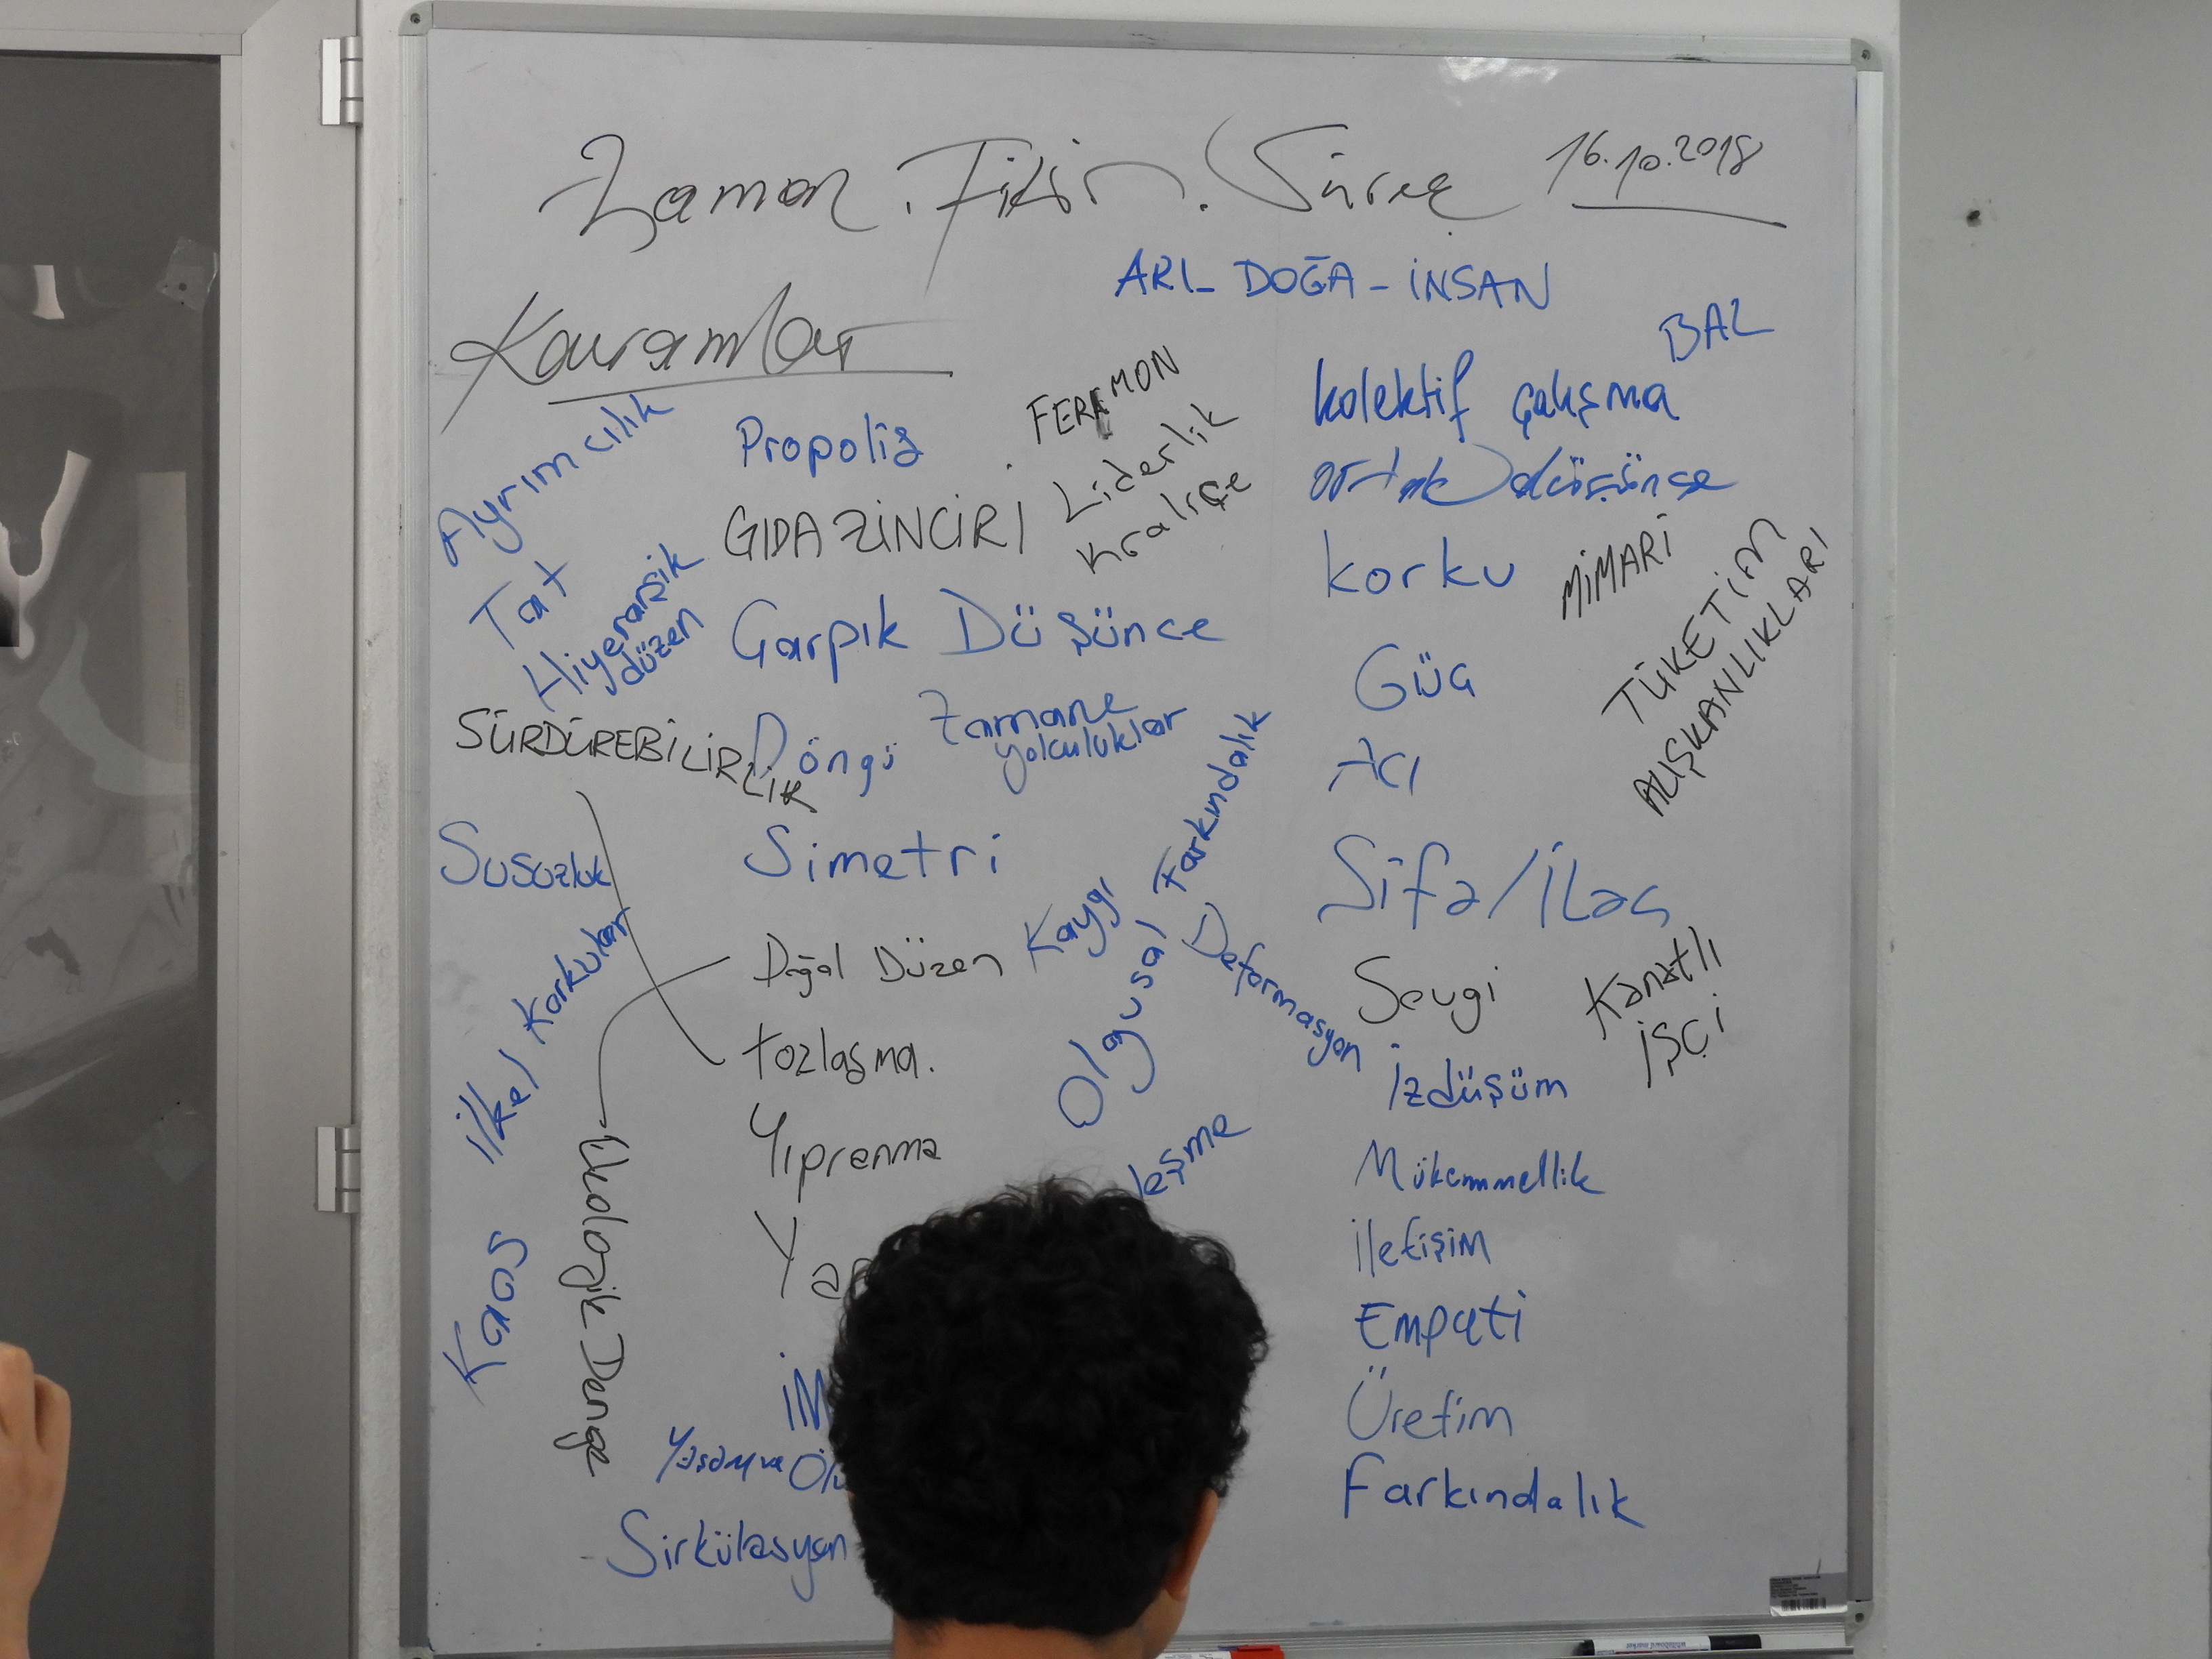 Zaman . Fikir . Süreç 16.10.2018
ARI- DOĞA - İNSAN
Kavramlar
BAL
Ayrımcılık
Propolis
FEREMON
kolektif çalışma
Liderlik
ortak düşünce
Kraliçe
GIDA ZİNCİRİ
Tat
Hiyerarşik
düzen
korku
MİMARİ
TÜKETİM
ALIŞKANLIKLARI
Çarpık Düşünce
Güç
SÜRDÜREBİLİRLİK
Döngü
Zamane
yolculuklar
Acı
Susuzluk
Simetri
Olgusal Farkındalık
Sifa/İlaç
İlkel Korkular
Doğal Düzen
Kaygı
Deformasyon
Sevgi
Kanatlı
İŞÇİ
tozlaşma.
İzdüşüm
Yıpranma
leşme
Mükemmellik
Kaos
Ekolojik Denge
Ya
İletişim
Empati
İM
Üretim
Yaşam ve Ölü
Farkındalık
- Sirkülasyon
whiteboard marker